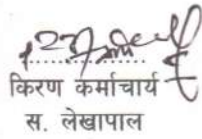 किरण कर्माचार्य
स. लेखापाल